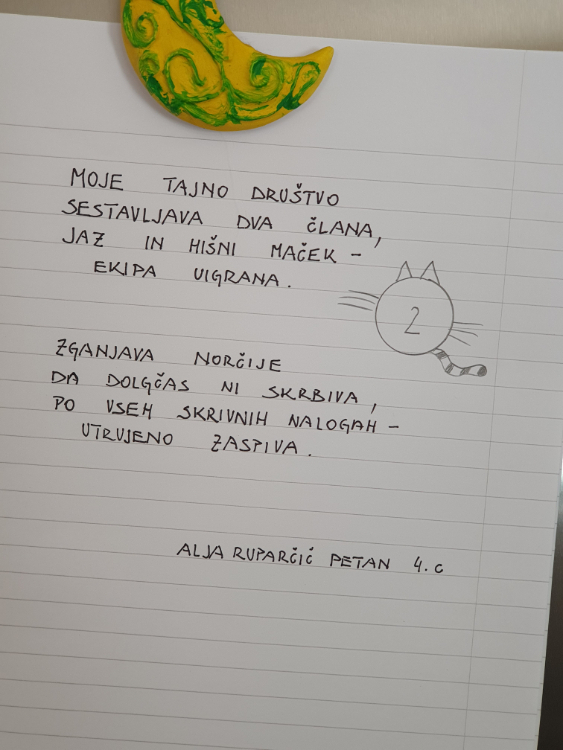 MOJE TAJNO DRUŠTVO
SESTAVLJAVA DVA ČLANA,
JAZ IN HIŠNI MAČEK -
EKIPA UIGRANA.
2
ZGANJAVA NORČIJE
DA DOLGČAS NI SKRBIVA,
PO VSEH SKRIVNIH NALOGAH -
UTRUJENO ZASPIVA.
ALJA RUPARČIČ PETAN 4. C